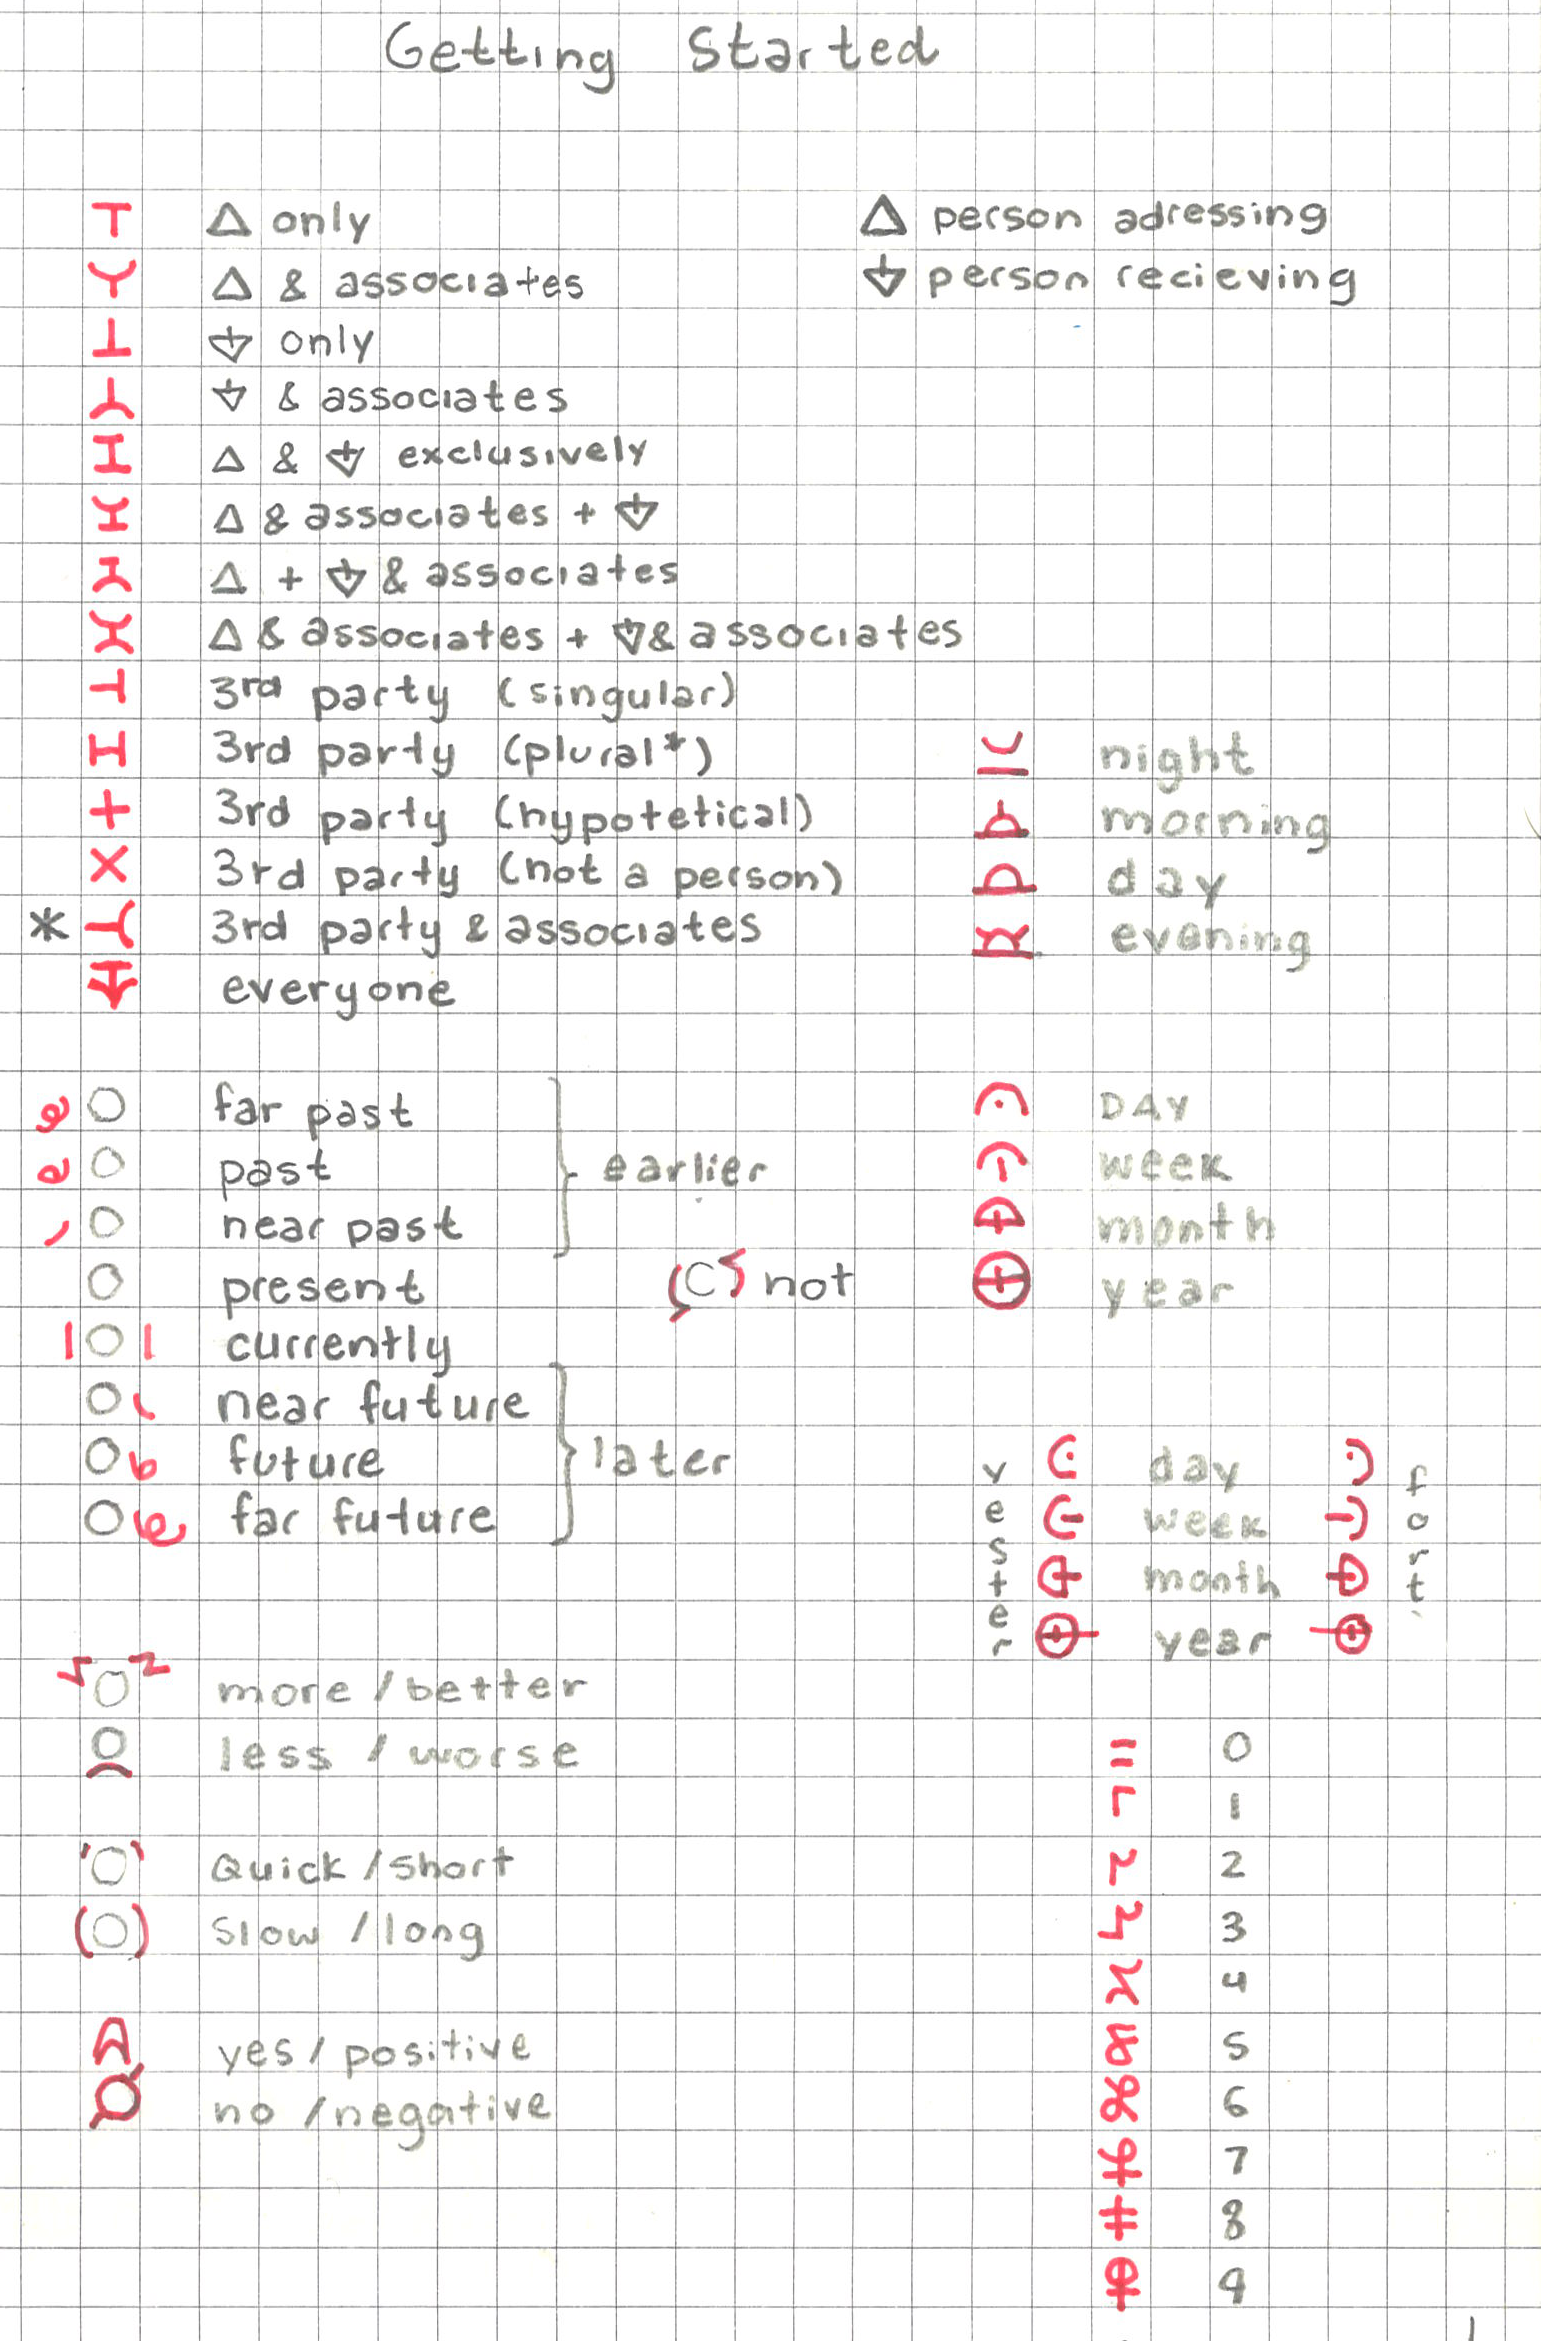 Getting Started
△ only
△ & associates
only
& associates
△ & exclusively
△ & associates +
△ + & associates
△ & associates + & associates
3rd party (singular)
3rd party (plural*)
3rd party (hypotetical)
3rd party (not a person)
* 3rd party & associates
everyone
△ person adressing
person recieving
night
morning
day
evening
far past
past
near past
earlier
present
not
currently
near future
future
far future
later
DAY
week
month
year
yester
day
week
month
year
fort.
more / better
less / worse
Quick / short
Slow / long
yes / positive
no / negative
0
1
2
3
4
5
6
7
8
9